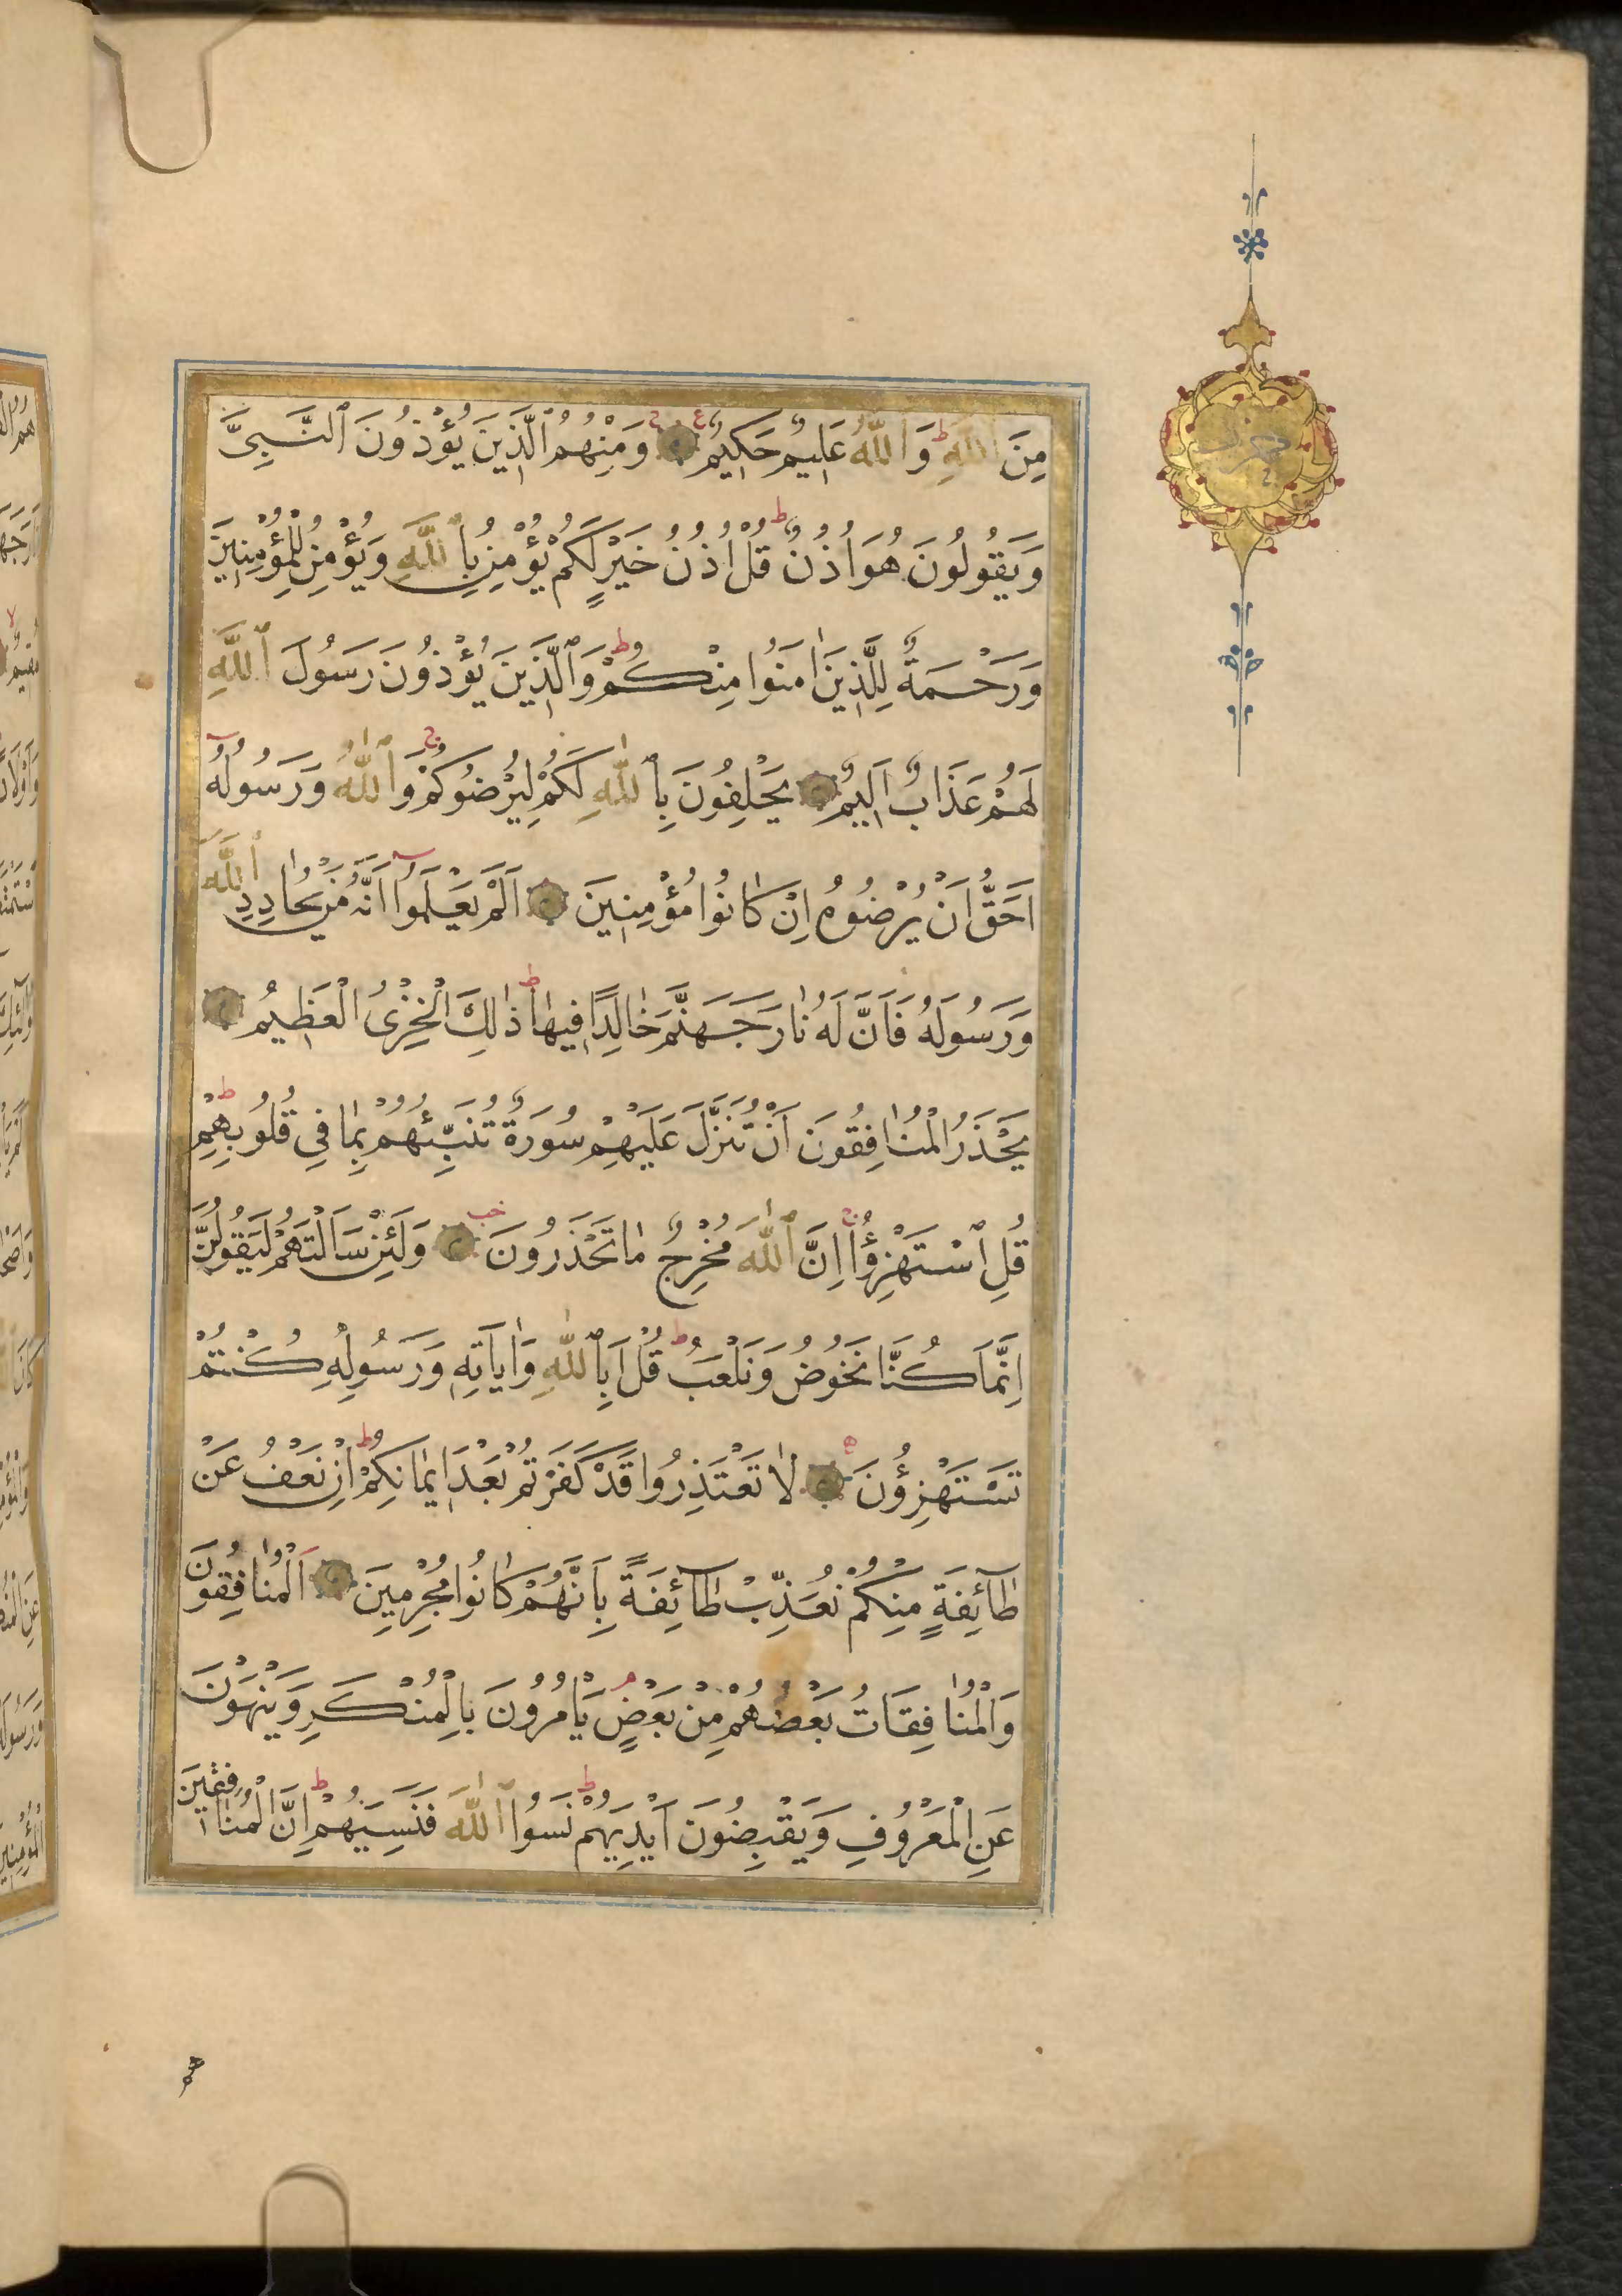 مِنَ ٱللَّهِ ط وَٱللَّهُ عَلِيمٌ حَكِيمٌ وَمِنْهُمُ ٱلَّذِينَ يُؤْذُونَ ٱلنَّبِىَّ
وَيَقُولُونَ هُوَ اُذُنٌ ط قُلْ اُذُنُ خَيْرٍ لَكُمْ يُؤْمِنُ بِٱللَّهِ وَيُؤْمِنُ لِلْمُؤْمِنِينَ
وَرَحْمَةٌ لِلَّذِينَ اٰمَنُوا مِنْكُمْ ط وَٱلَّذِينَ يُؤْذُونَ رَسُولَ ٱللَّهِ
لَهُمْ عَذَابٌ اَلِيمٌ يَحْلِفُونَ بِٱللّٰهِ لَكُمْ لِيُرْضُوكُمْ ج وَٱللّٰهُ وَرَسُولُهُٓ
اَحَقُّ اَنْ يُرْضُوهُ اِنْ كَانُوا مُؤْمِنِينَ اَلَمْ يَعْلَمُٓوا اَنَّهُ مَنْ يُحَادِدِ ٱللَّهَ
وَرَسُولَهُ فَاَنَّ لَهُ نَارَ جَهَنَّمَ خَالِدًا فِيهَا ط ذٰلِكَ الْخِزْىُ الْعَظِيمُ
يَحْذَرُ الْمُنَافِقُونَ اَنْ تُنَزَّلَ عَلَيْهِمْ سُورَةٌ تُنَبِّئُهُمْ بِمَا فِى قُلُوبِهِمْ ط
قُلِ ٱسْتَهْزِؤُا ج اِنَّ ٱللّٰهَ مُخْرِجٌ مَا تَحْذَرُونَ وَلَئِنْ سَاَلْتَهُمْ لَيَقُولُنَّ
اِنَّمَا كُنَّا نَخُوضُ وَنَلْعَبُ ط قُلْ اَبِٱللّٰهِ وَاٰيَاتِهِ وَرَسُولِهِ كُنْتُمْ
تَسْتَهْزِؤُنَ لَا تَعْتَذِرُوا قَدْ كَفَرْتُمْ بَعْدَ اِيمَانِكُمْ ط اِنْ نَعْفُ عَنْ
طَٓائِفَةٍ مِنْكُمْ نُعَذِّبْ طَٓائِفَةً بِاَنَّهُمْ كَانُوا مُجْرِمِينَ اَلْمُنَافِقُونَ
وَالْمُنَافِقَاتُ بَعْضُهُمْ مِنْ بَعْضٍ م يَاْمُرُونَ بِالْمُنْكَرِ وَيَنْهَوْنَ
عَنِ الْمَعْرُوفِ وَيَقْبِضُونَ اَيْدِيَهُمْ ط نَسُوا ٱللّٰهَ فَنَسِيَهُمْ ط اِنَّ الْمُنَافِقِينَ